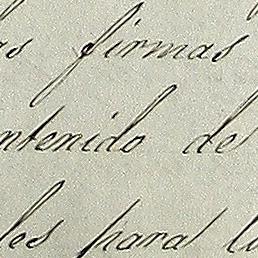 as firmas
ntenido de
les para l